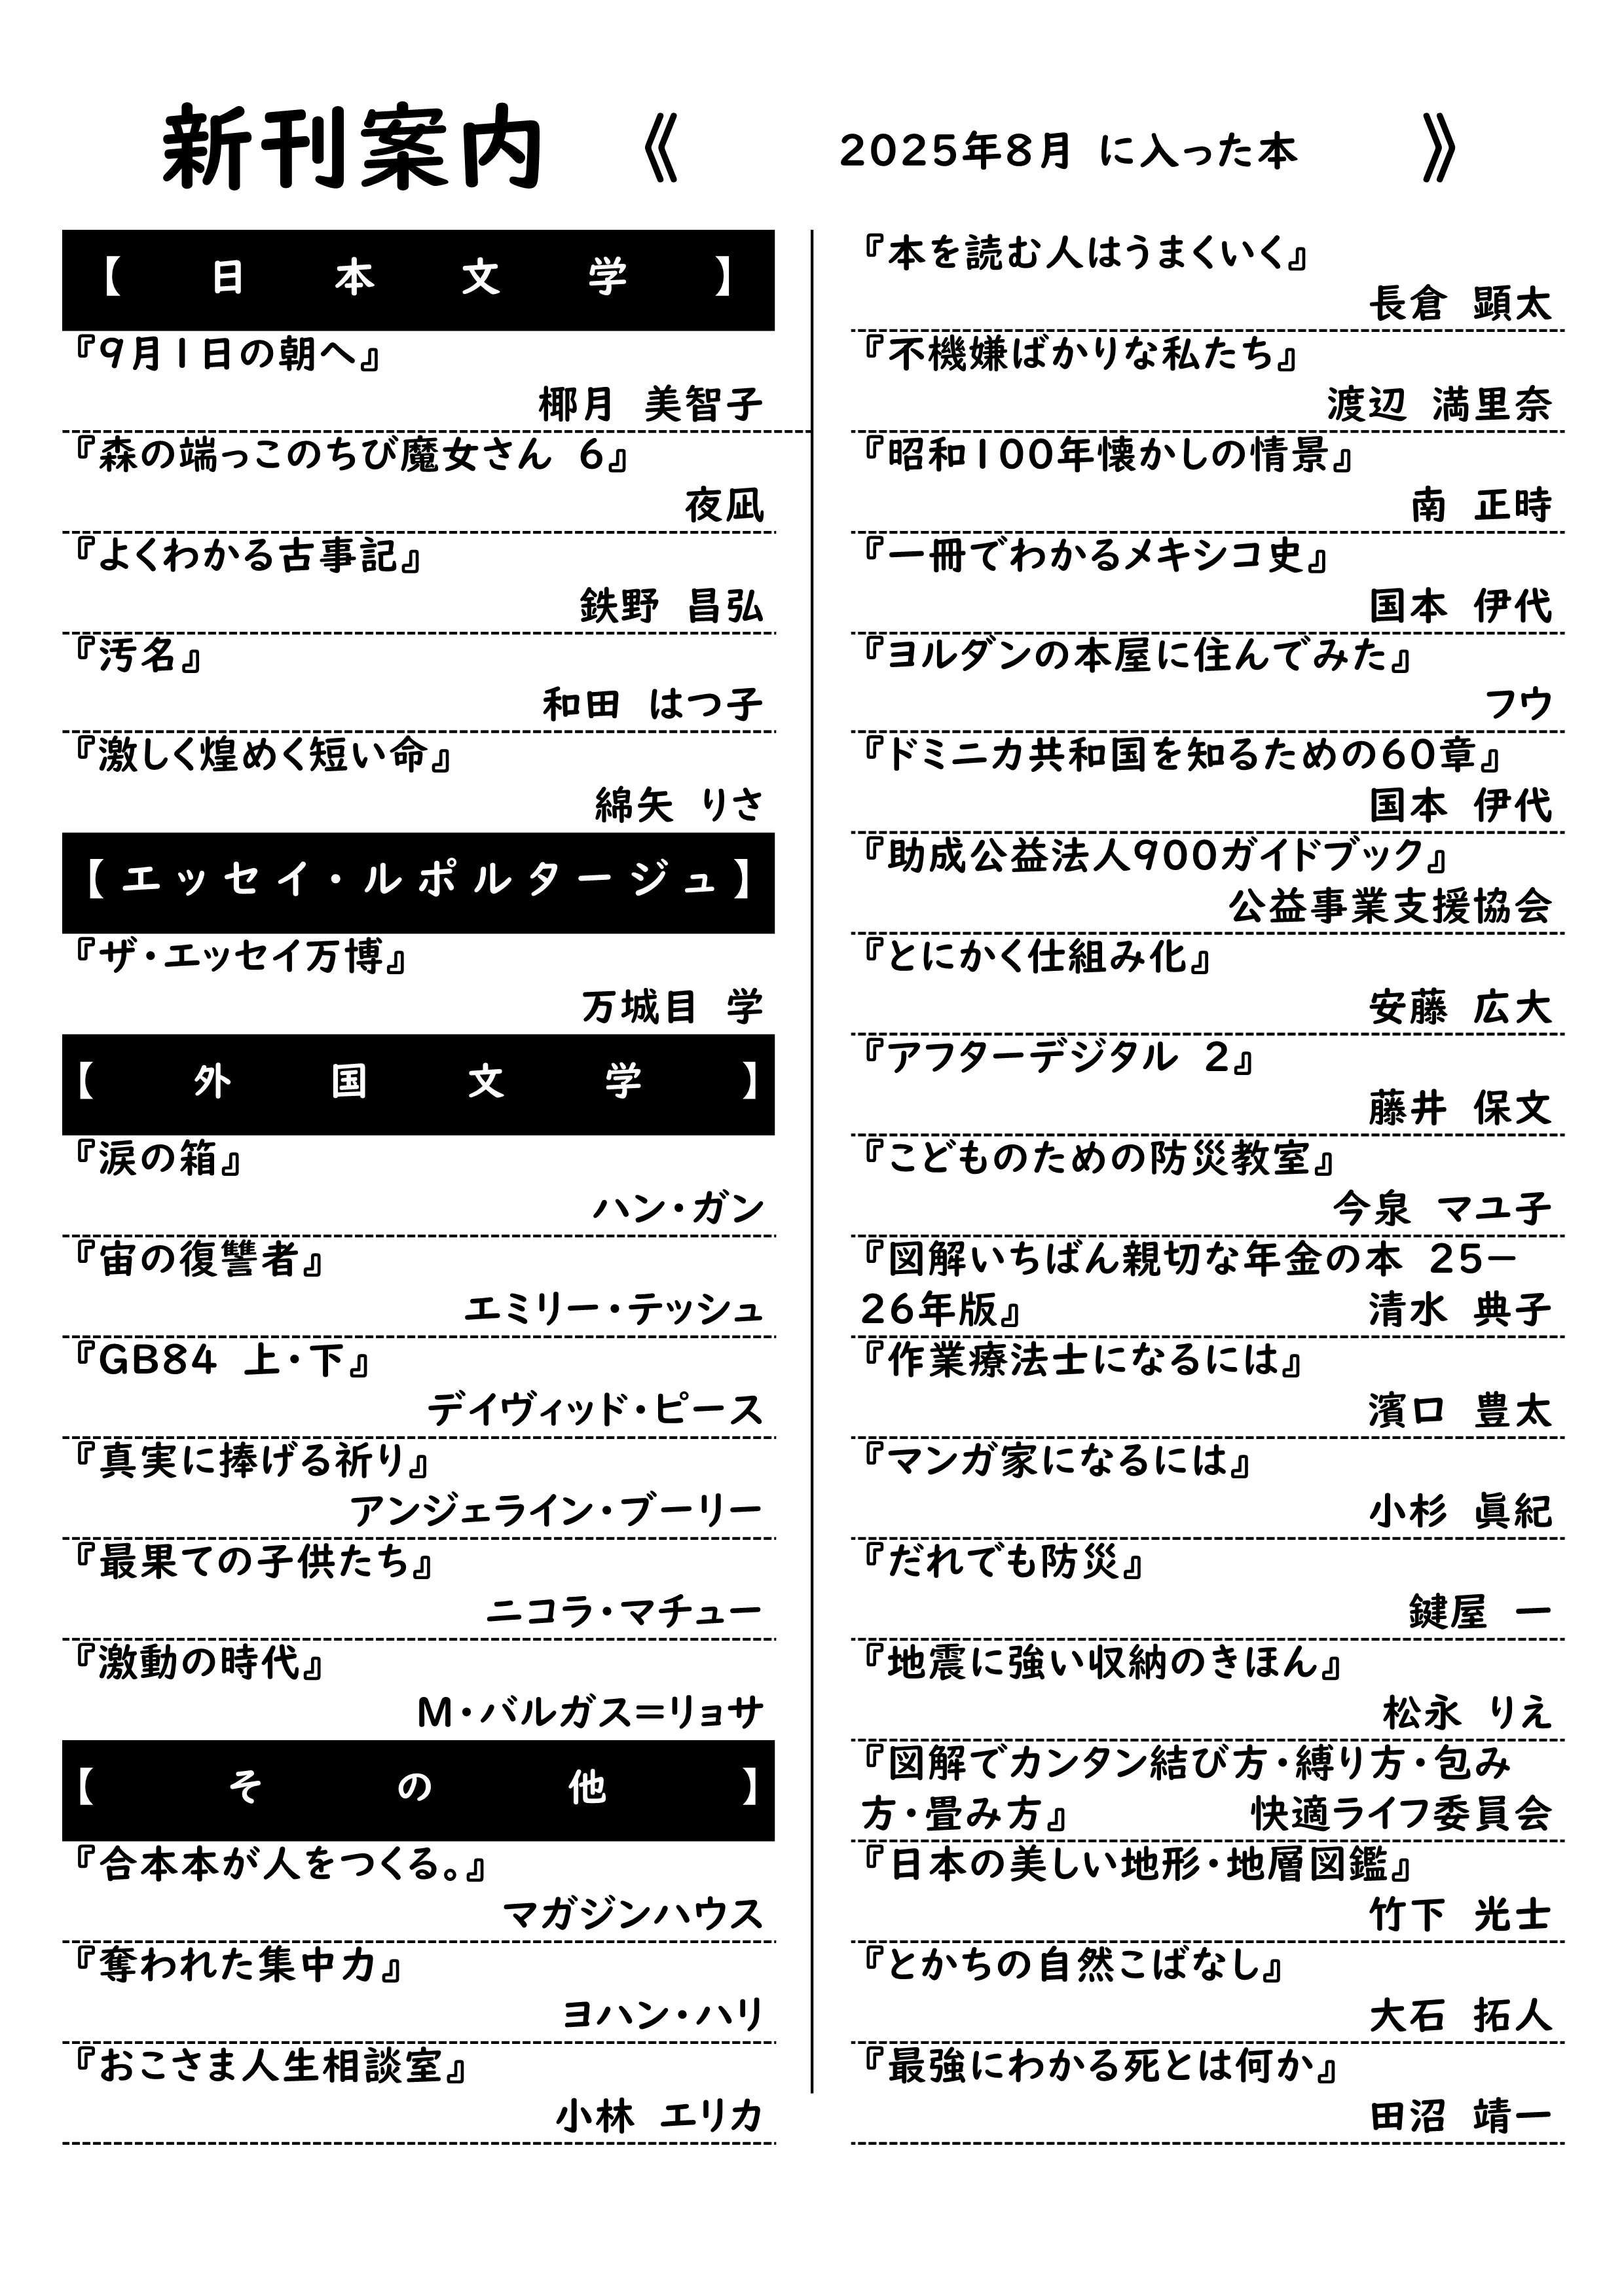 新刊案内 《 2025年8月 に入った本 》
【日本文学】
『9月1日の朝へ』
椰月 美智子
『森の端っこのちび魔女さん 6』
夜凪
『よくわかる古事記』
鉄野 昌弘
『汚名』
和田 はつ子
『激しく煌めく短い命』
綿矢 りさ
【エッセイ・ルポルタージュ】
『ザ・エッセイ万博』
万城目 学
【外国文学】
『涙の箱』
ハン・ガン
『宙の復讐者』
エミリー・テッシュ
『GB84 上・下』
デイヴィッド・ピース
『真実に捧げる祈り』
アンジェライン・ブーリー
『最果ての子供たち』
ニコラ・マチュー
『激動の時代』
M・バルガス=リョサ
【その他】
『合本本が人をつくる。』
マガジンハウス
『奪われた集中力』
ヨハン・ハリ
『おこさま人生相談室』
小林 エリカ
『本を読む人はうまくいく』
長倉 顕太
『不機嫌ばかりな私たち』
渡辺 満里奈
『昭和100年懐かしの情景』
南 正時
『一冊でわかるメキシコ史』
国本 伊代
『ヨルダンの本屋に住んでみた』
フウ
『ドミニカ共和国を知るための60章』
国本 伊代
『助成公益法人900ガイドブック』
公益事業支援協会
『とにかく仕組み化』
安藤 広大
『アフターデジタル 2』
藤井 保文
『こどものための防災教室』
今泉 マユ子
『図解いちばん親切な年金の本 25−
26年版』 清水 典子
『作業療法士になるには』
濱口 豊太
『マンガ家になるには』
小杉 眞紀
『だれでも防災』
鍵屋 一
『地震に強い収納のきほん』
松永 りえ
『図解でカンタン結び方・縛り方・包み
方・畳み方』 快適ライフ委員会
『日本の美しい地形・地層図鑑』
竹下 光士
『とかちの自然こばなし』
大石 拓人
『最強にわかる死とは何か』
田沼 靖一